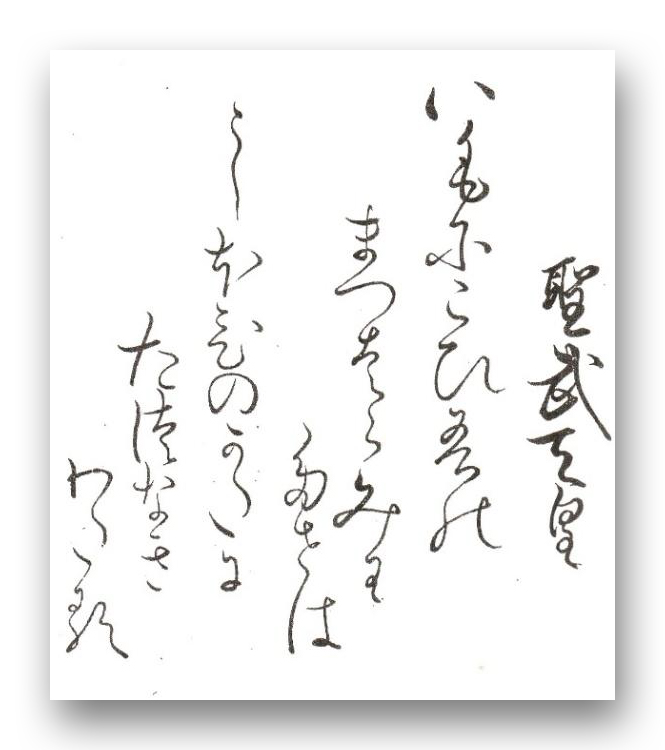 聖武天皇
いもにこひ吾の
まつはらみわ
たせは
しほひのかたに
たつなき
わたる